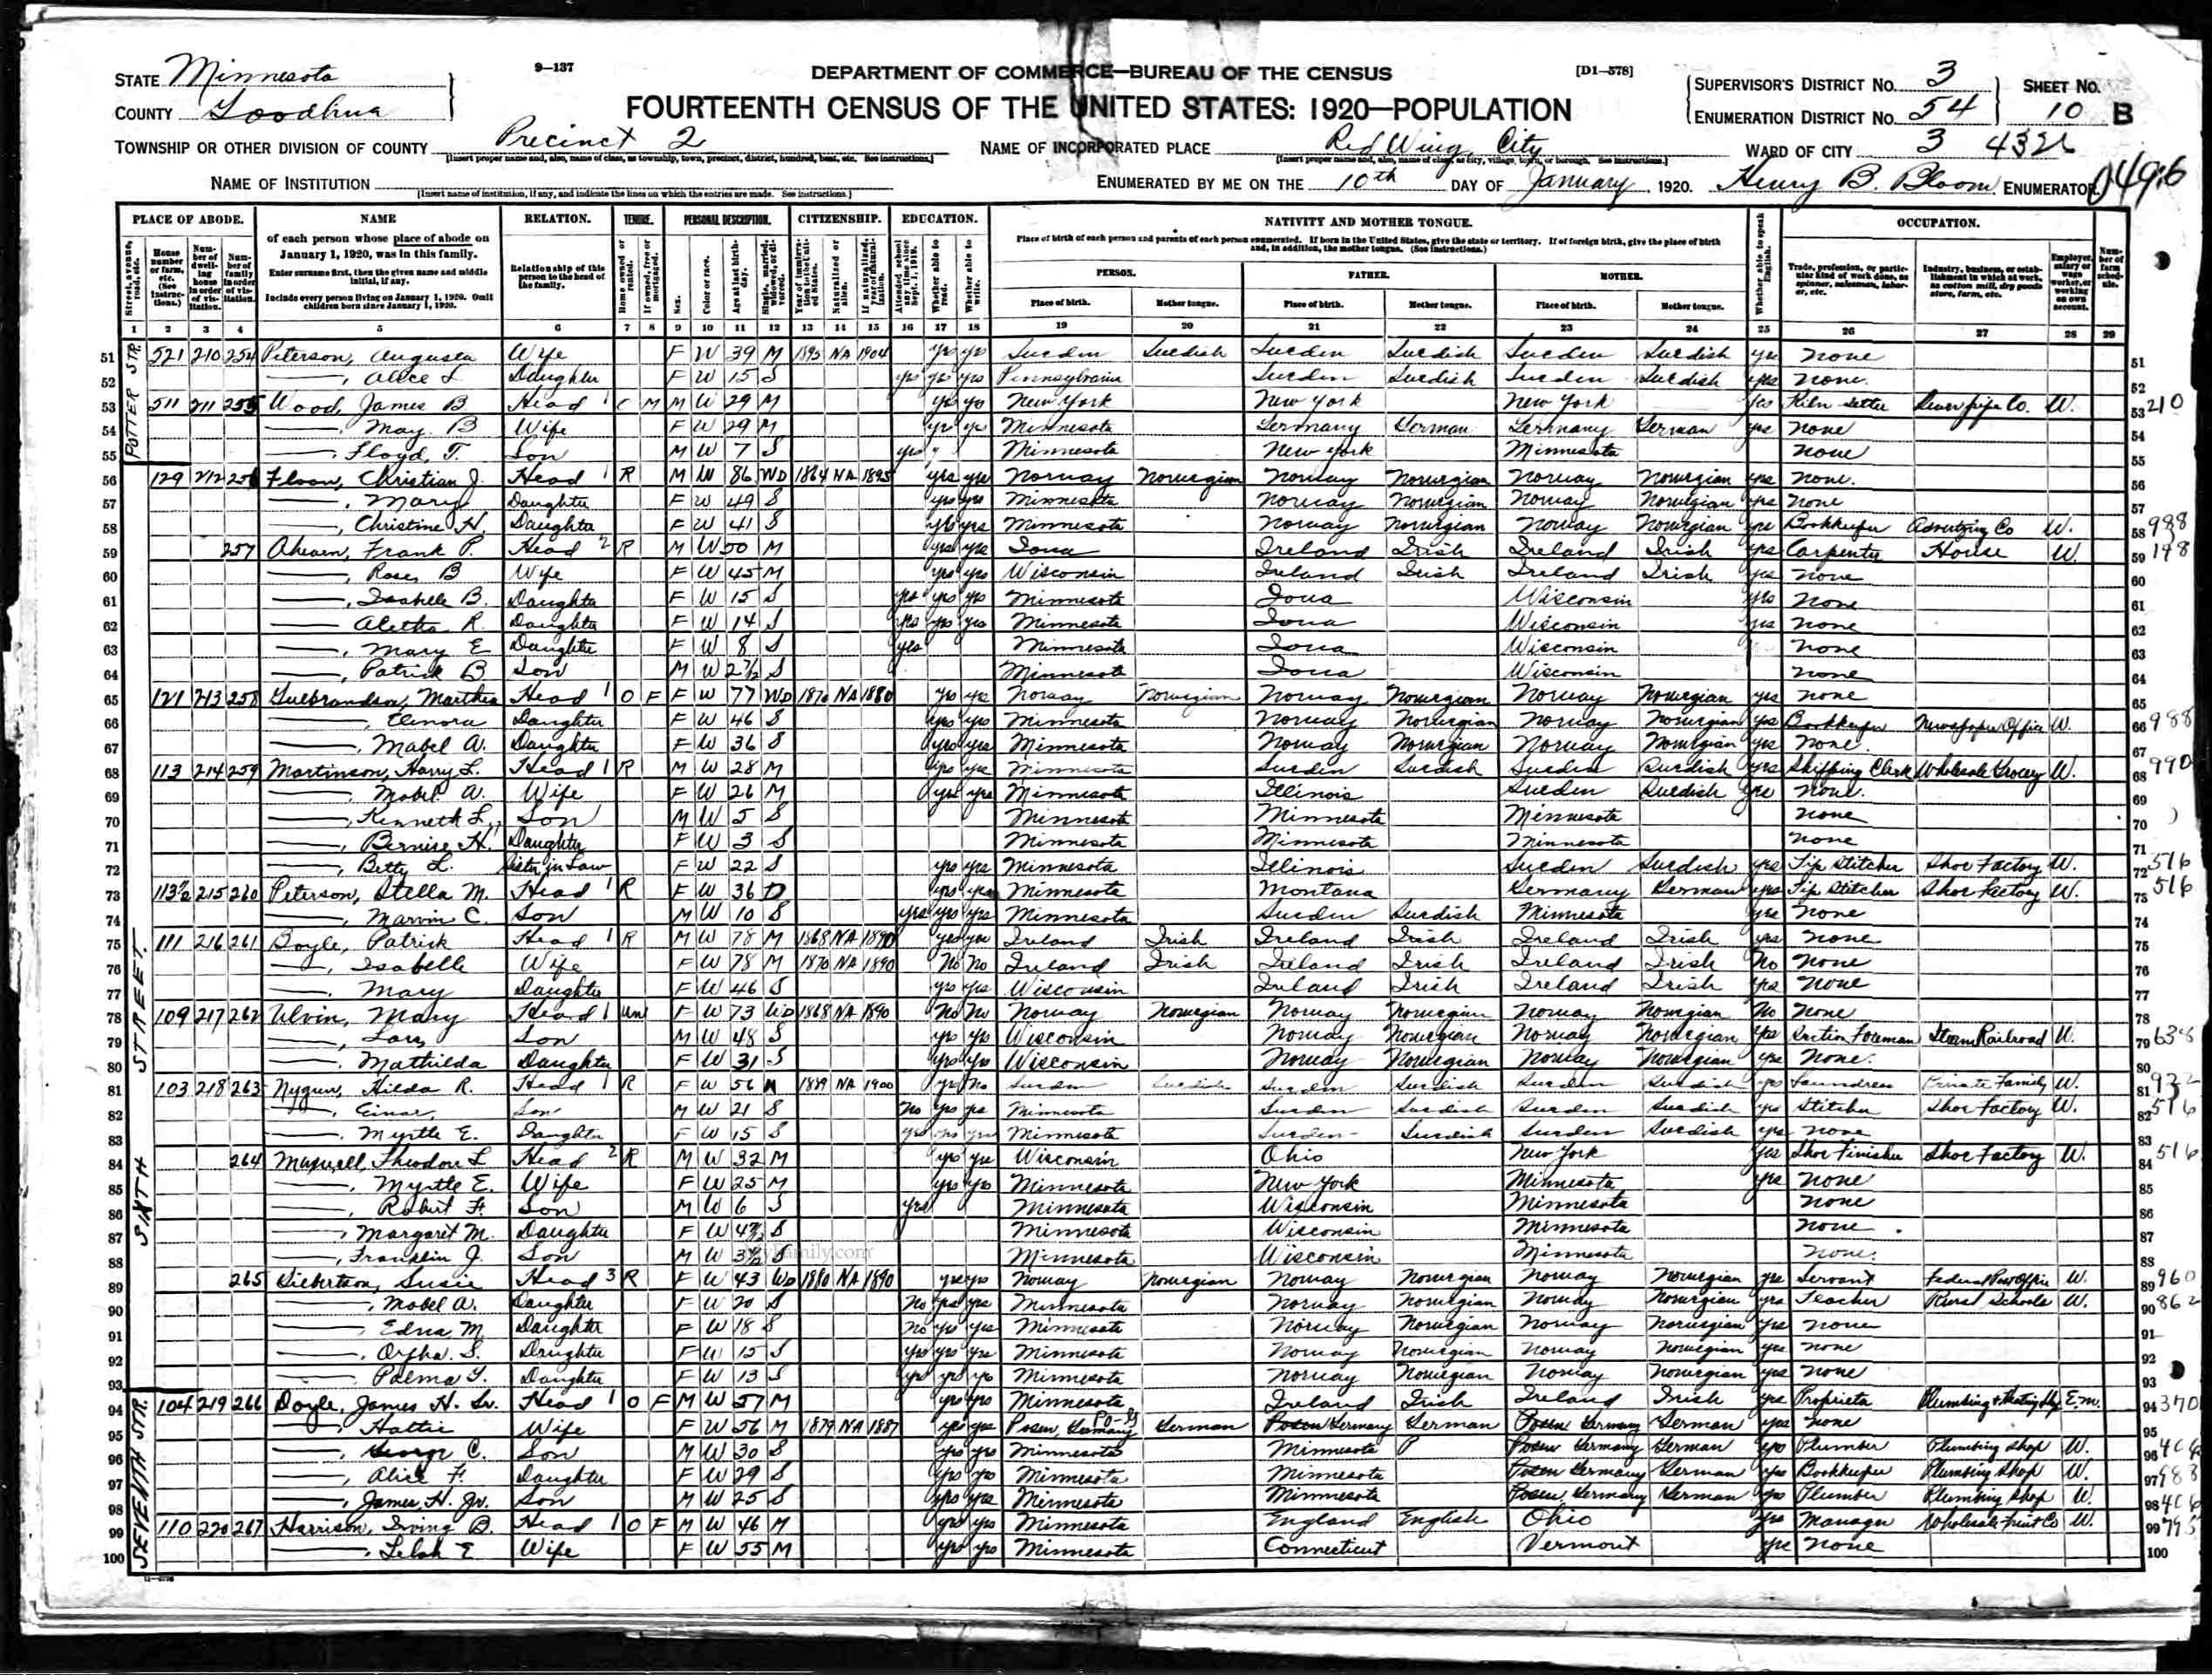 STATE Minnesota
COUNTY Goodhue
9-137
DEPARTMENT OF COMMERCE—BUREAU OF THE CENSUS
[D1-578]
FOURTEENTH CENSUS OF THE UNITED STATES: 1920—POPULATION
SUPERVISOR'S DISTRICT No. 3
ENUMERATION DISTRICT No. 54
SHEET No. 10 B
TOWNSHIP OR OTHER DIVISION OF COUNTY Precinct 2
NAME OF INCORPORATED PLACE Red Wing City
WARD OF CITY 3
NAME OF INSTITUTION
ENUMERATED BY ME ON THE 10th DAY OF January, 1920. Henry B. Bloom ENUMERATOR
PLACE OF ABODE. NAME RELATION. TENURE. PERSONAL DESCRIPTION. CITIZENSHIP. EDUCATION. NATIVITY AND MOTHER TONGUE. OCCUPATION.
of each person whose place of abode on January 1, 1920, was in this family.
Enter surname first, then the given name and middle initial, if any.
Include every person living on January 1, 1920. Omit children born since January 1, 1920.
Relationship of this person to the head of the family.
Place of birth of each person and parents of each person enumerated. If born in the United States, give the state or territory. If of foreign birth, give the place of birth and, in addition, the mother tongue. (See instructions.)
PERSON. FATHER. MOTHER.
Place of birth. Mother tongue. Place of birth. Mother tongue. Place of birth. Mother tongue.
1 2 3 4 5 6 7 8 9 10 11 12 13 14 15 16 17 18 19 20 21 22 23 24 25 26 27 28 29
POTTER STR.
51 521 210 254 Peterson, Augusta Wife F W 39 M 1893 NA 1904 yes yes Sweden Swedish Sweden Swedish Sweden Swedish yes none 51
52 —, Alice L. Daughter F W 15 S yes yes yes Pennsylvania Sweden Swedish Sweden Swedish yes none 52
53 511 211 255 Wood, James B. Head 1 M M W 29 M yes yes New York New York New York yes Kiln setter Sewer pipe Co. W. 53 210
54 —, May B Wife F W 29 M yes yes Minnesota Germany German Germany German yes none 54
55 —, Floyd T. Son M W 7 S yes Minnesota New York Minnesota none 55
SIXTH STREET.
56 129 212 256 Floan, Christian J. Head 1 R M W 86 WD 1864 NA 1895 yes yes Norway Norwegian Norway Norwegian Norway Norwegian yes none 56
57 —, Mary Daughter F W 49 S yes yes Minnesota Norway Norwegian Norway Norwegian yes none 57
58 —, Christine H. Daughter F W 41 S yes yes Minnesota Norway Norwegian Norway Norwegian yes Bookkeeper Advertizing Co W. 58 988
59 257 Ahearn, Frank P. Head 2 R M W 50 M yes yes Iowa Ireland Irish Ireland Irish yes Carpenter House W. 59
60 —, Rose B Wife F W 45 M yes yes Wisconsin Ireland Irish Ireland Irish yes none 60
61 —, Isabelle B. Daughter F W 15 S yes yes yes Minnesota Iowa Wisconsin yes none 61
62 —, Aletha R. Daughter F W 14 S yes yes yes Minnesota Iowa Wisconsin yes none 62
63 —, Mary E Daughter F W 8 S yes Minnesota Iowa Wisconsin none 63
64 —, Patrick B Son M W 2 S Minnesota Iowa Wisconsin none 64
65 121 213 258 Gulbrandson, Marthea Head 1 O F F W 77 WD 1870 NA 1880 yes yes Norway Norwegian Norway Norwegian Norway Norwegian yes none 65
66 —, Elenora Daughter F W 46 S yes yes Minnesota Norway Norwegian Norway Norwegian yes Bookkeeper Newspaper Office W. 66 988
67 —, Mabel A. Daughter F W 36 S yes yes Minnesota Norway Norwegian Norway Norwegian yes none 67
68 113 214 259 Martinson, Harry L. Head 1 R M W 28 M yes yes Minnesota Sweden Swedish Sweden Swedish yes Shipping Clerk Wholesale Grocery W. 68 990
69 —, Mabel A. Wife F W 26 M yes yes Minnesota Illinois Sweden Swedish yes none 69
70 —, Kenneth L. Son M W 5 S Minnesota Minnesota Minnesota none 70
71 —, Bernise H. Daughter F W 3 S Minnesota Minnesota Minnesota none 71
72 —, Betty L. Sister in Law F W 22 S yes yes Minnesota Illinois Sweden Swedish yes Tip Stitcher Shoe Factory W. 72 516
73 113½ 215 260 Peterson, Stella M. Head 1 R F W 36 D yes yes Minnesota Montana Germany German yes Tip Stitcher Shoe Factory W. 73 516
74 —, Marvin C. Son M W 10 S yes yes yes Minnesota Sweden Swedish Minnesota yes none 74
75 111 216 261 Boyle, Patrick Head 1 R M W 78 M 1868 NA 1890 yes yes Ireland Irish Ireland Irish Ireland Irish yes none 75
76 —, Isabelle Wife F W 78 M 1870 NA 1890 No No Ireland Irish Ireland Irish Ireland Irish No none 76
77 —, Mary Daughter F W 46 S yes yes Wisconsin Ireland Irish Ireland Irish yes none 77
78 109 217 262 Ulvin, Mary Head 1 un F W 73 WD 1868 NA 1890 No No Norway Norwegian Norway Norwegian Norway Norwegian No none 78
79 —, Lars Son M W 48 S yes yes Wisconsin Norway Norwegian Norway Norwegian yes Section Foreman Steam Railroad W. 79 638
80 —, Mathilda Daughter F W 31 S yes yes Wisconsin Norway Norwegian Norway Norwegian yes None 80
81 103 218 263 Nygren, Hilda R. Head 1 R F W 56 1889 NA 1900 yes No Sweden Swedish Sweden Swedish Sweden Swedish yes Laundress Private Family W. 81 932
82 —, Einar Son M W 21 S No yes yes Minnesota Sweden Swedish Sweden Swedish yes Stitcher Shoe Factory W. 82 516
83 —, Myrtle E. Daughter F W 15 S yes yes yes Minnesota Sweden Swedish Sweden Swedish yes none 83
84 264 Maxwell, Theodore L Head 2 R M W 32 M yes yes Wisconsin Ohio New York yes Shoe Finisher Shoe Factory W. 84 516
85 —, Myrtle E. Wife F W 25 M yes yes Minnesota New York Minnesota yes none 85
86 —, Robert F. Son M W 6 S yes Minnesota Wisconsin Minnesota none 86
87 —, Margaret M. Daughter F W 4 S Minnesota Wisconsin Minnesota none 87
88 —, Franklin J. Son M W 3 S Minnesota Wisconsin Minnesota none 88
89 265 Susie Head 3 R F W 43 WD 1880 NA 1890 yes yes Norway Norwegian Norway Norwegian Norway Norwegian yes Servant Federal Post Office W. 89 960
90 —, Mabel A. Daughter F W 20 S No yes yes Minnesota Norway Norwegian Norway Norwegian yes Teacher Rural Schools W. 90 862
91 —, Edna M Daughter F W 18 S No yes yes Minnesota Norway Norwegian Norway Norwegian yes none 91
92 —, Orpha S. Daughter F W 15 S yes yes yes Minnesota Norway Norwegian Norway Norwegian yes none 92
93 —, Palma Y. Daughter F W 13 S yes yes yes Minnesota Norway Norwegian Norway Norwegian yes none 93
SEVENTH STR.
94 104 219 266 Doyle, James H. Sr. Head 1 O F M W 57 M yes yes Minnesota Ireland Irish Ireland Irish yes Proprietor Plumbing & Heating Shop Em. 94 370
95 —, Hattie Wife F W 56 M 1879 NA 1887 yes yes Posen, Germany German Posen Germany German Posen Germany German yes none 95
96 —, George C. Son M W 30 S yes yes Minnesota Minnesota Posen Germany German yes Plumber Plumbing Shop W. 96
97 —, Alice F. Daughter F W 29 S yes yes Minnesota Minnesota Posen Germany German yes Bookkeeper Plumbing Shop W. 97 988
98 —, James H. Jr. Son M W 25 S yes yes Minnesota Minnesota Posen Germany German yes Plumber Plumbing Shop W. 98
99 110 220 267 Harrison, Irving B. Head 1 O F M W 46 M yes yes Minnesota England English Ohio yes Manager Wholesale Fruit Co W. 99
100 —, Lelah E Wife F W 55 M yes yes Minnesota Connecticut Vermont yes none 100